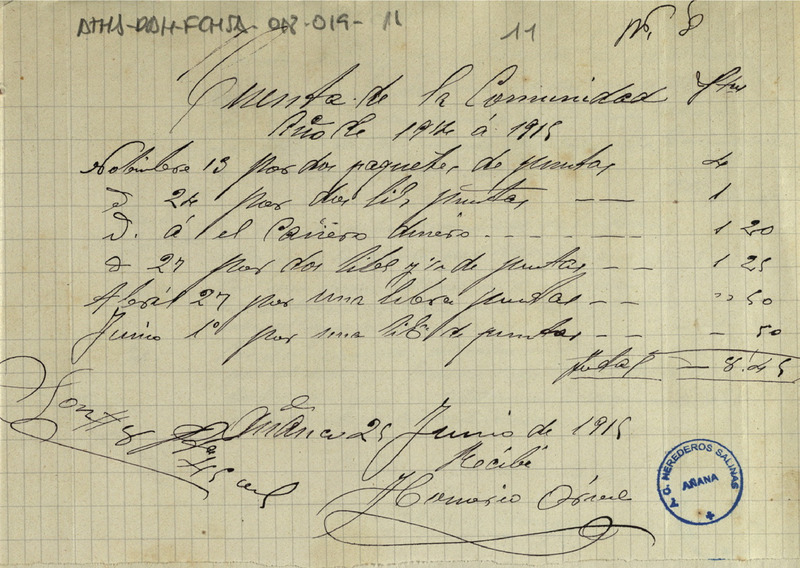 ATHA-DAH-FCHSA-048-019-11
11
No. 8
Cuenta de la Comunidad Ptas
Año de 1914 á 1915
Nobiembre 13 por dos paquetes de puntas 4
D 24 por dos lib, puntas 1
D. á el Carrero dinero 1 20
D 27 por dos libs y ½ de puntas 1 25
Abril 27 por una libra puntas " 50
Junio 1º por una lib de puntas 50
Total 8.45
Son 8
45
Añana 25 Junio de 1915
Recibí
Honorio
A. C. HEREDEROS SALINAS
AÑANA